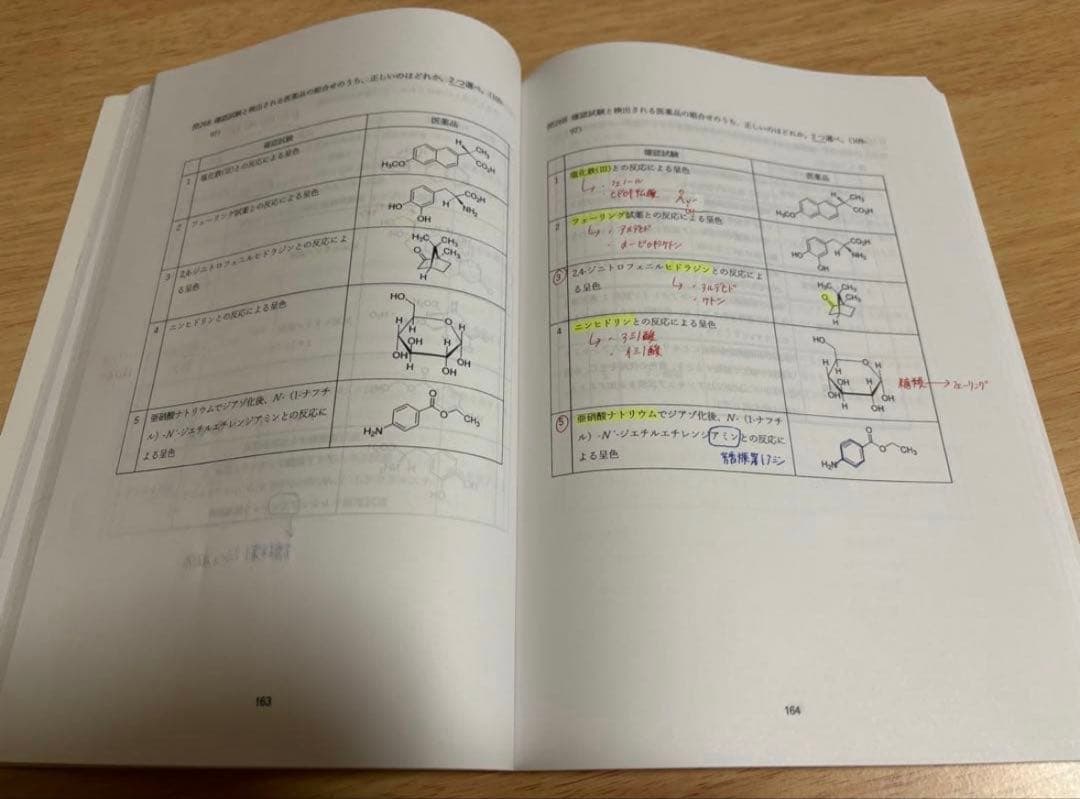 確認試験と検出される医薬品の組合せのうち、正しいのはどれか。2つ選べ。
97)
確認試験
医薬品
1 塩化鉄(III)との反応による呈色
H CH₃
H₃CO
CO₂H
2 フェーリング試薬との反応による呈色
CO₂H
HO
H NH₂
OH
3 2,4-ジニトロフェニルヒドラジンとの反応によ
る呈色
H₃C CH₃
O CH₃
H
4 ニンヒドリンとの反応による呈色
HO
H O H
H
OH H
OH OH
H OH
5 亜硝酸ナトリウムでジアゾ化後、N-（1-ナフチ
ル）-N′-ジエチルエチレンジアミンとの反応に
よる呈色
O
O CH₃
H₂N
163
確認試験と検出される医薬品の組合せのうち、正しいのはどれか。2つ選べ。
97)
確認試験
医薬品
1 塩化鉄(III)との反応による呈色
フェノール
ヒドロキサム酸
H CH₃
H₃CO
CO₂H
2 フェーリング試薬との反応による呈色
アルデヒド
α-ヒドロキシケトン
CO₂H
HO
H NH₂
OH
3 2,4-ジニトロフェニルヒドラジンとの反応によ
る呈色
アルデヒド
ケトン
H₃C CH₃
O CH₃
H
4 ニンヒドリンとの反応による呈色
アミノ酸
HO
H O H
H
OH H
OH OH
H OH
糖類 → フェーリング
5 亜硝酸ナトリウムでジアゾ化後、N-（1-ナフチ
ル）-N′-ジエチルエチレンジアミンとの反応に
よる呈色
芳香族第1アミン
O
O CH₃
H₂N
164